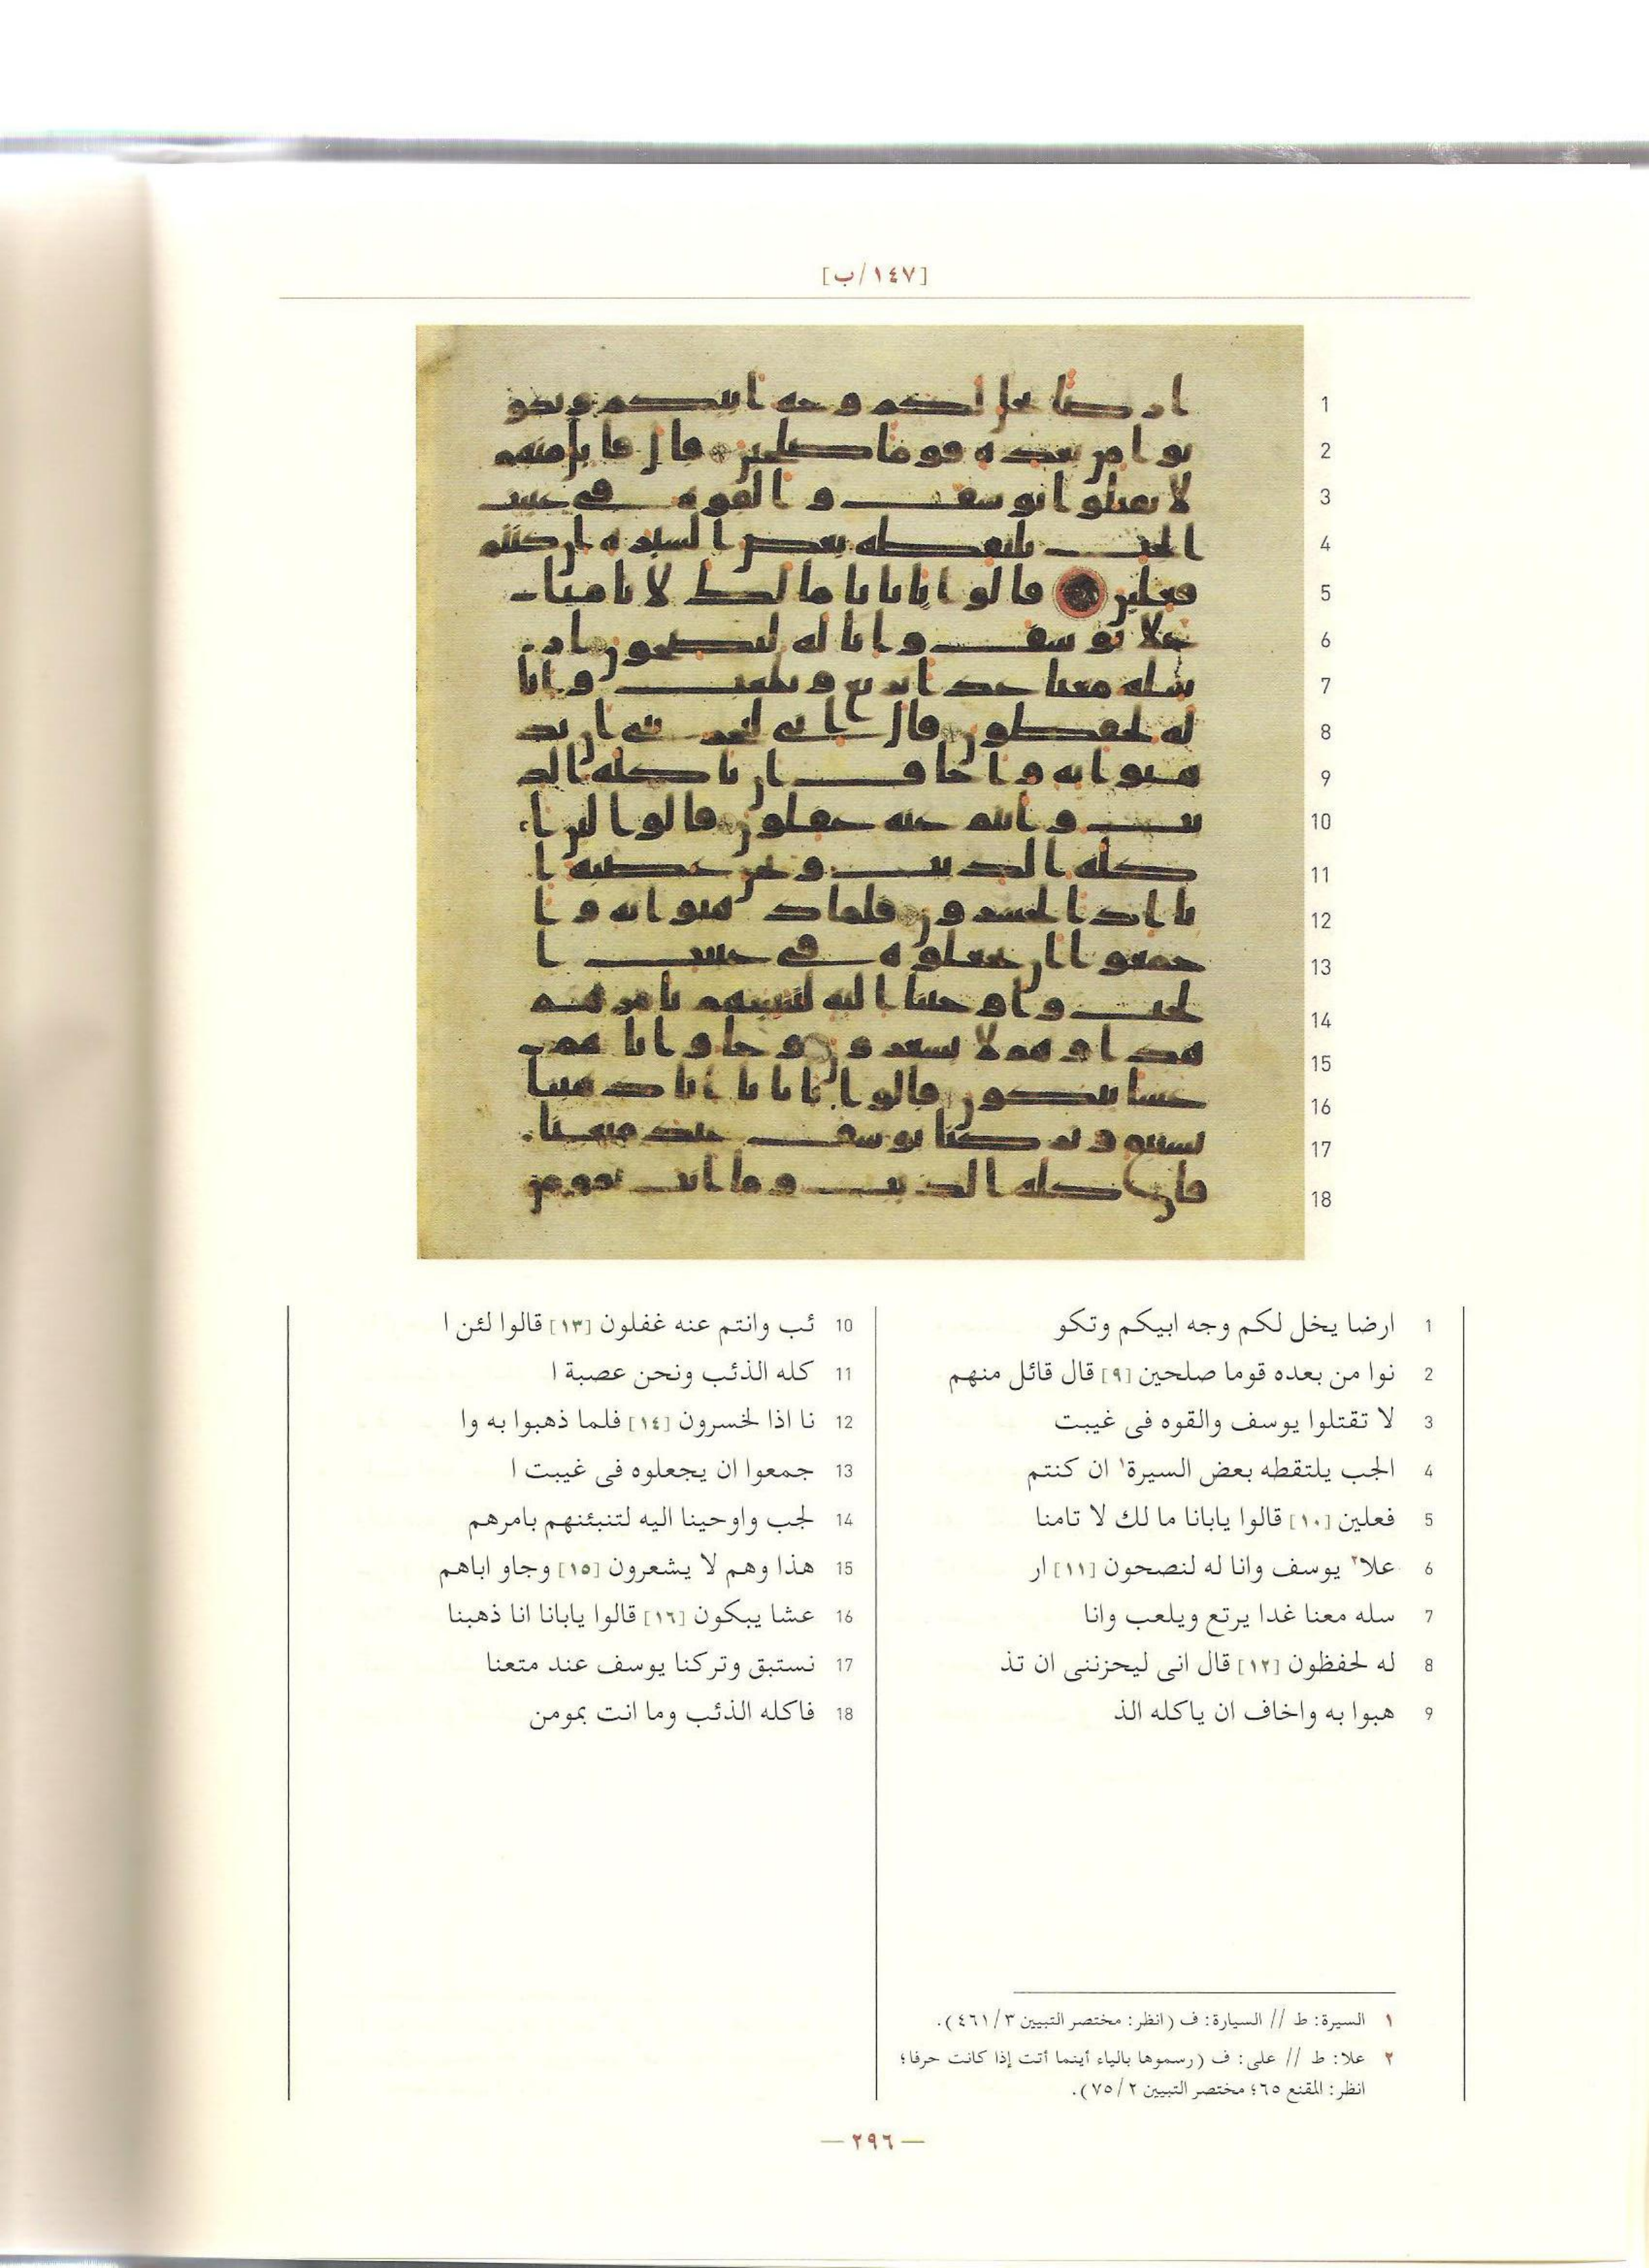 [١٤٧/ب]
1 ارضا يخل لكم وجه ابيكم وتكو
2 نوا من بعده قوما صلحين [٩] قال قائل منهم
3 لا تقتلوا يوسف والقوه فى غيبت
4 الجب يلتقطه بعض السيرة١ ان كنتم
5 فعلين [١٠] قالوا يابانا ما لك لا تامنا
6 علا٢ يوسف وانا له لنصحون [١١] ار
7 سله معنا غدا يرتع ويلعب وانا
8 له لحفظون [١٢] قال انى ليحزننى ان تذ
9 هبوا به واخاف ان ياكله الذ
10 ئب وانتم عنه غفلون [١٣] قالوا لئن ا
11 كله الذئب ونحن عصبة ا
12 نا اذا لخسرون [١٤] فلما ذهبوا به وا
13 جمعوا ان يجعلوه فى غيبت ا
14 لجب واوحينا اليه لتنبئنهم بامرهم
15 هذا وهم لا يشعرون [١٥] وجاو اباهم
16 عشا يبكون [١٦] قالوا يابانا انا ذهبنا
17 نستبق وتركنا يوسف عند متعنا
18 فاكله الذئب وما انت بمومن
١ السيرة: ط // السيارة: ف (انظر: مختصر التبيين ٣/٤٦١).
٢ علا: ط // على: ف (رسموها بالياء أينما أتت إذا كانت حرفا؛
انظر: المقنع ٦٥؛ مختصر التبيين ٢/٧٥).
— ٢٩٦ —